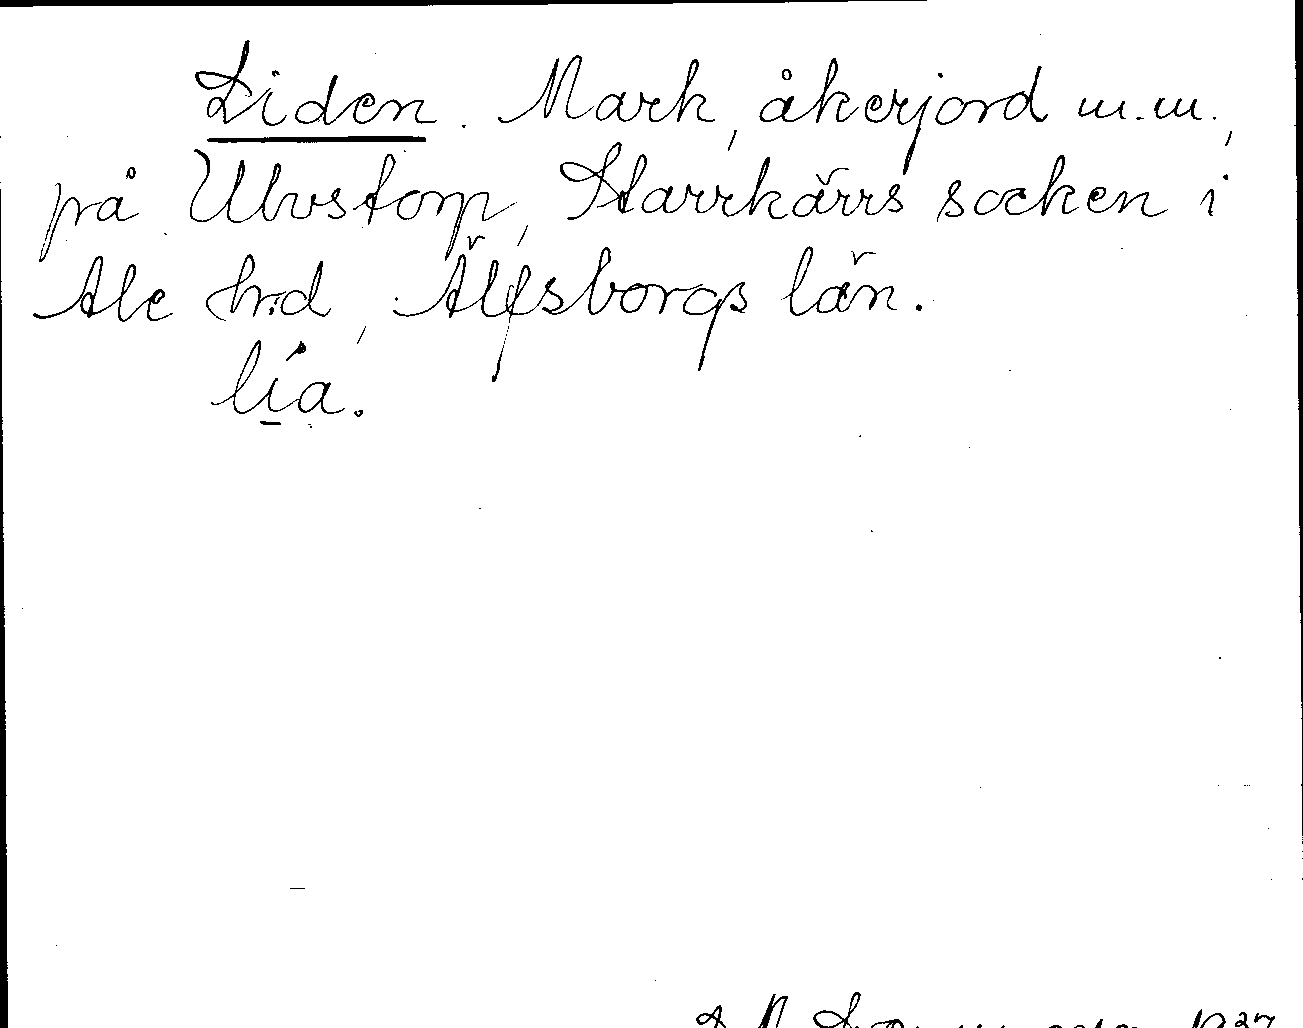 Liden. Mark, åkerjord m.m.,
på Ulvstorp, Starrkärrs socken i
Ale hrd, Älfsborgs län.
lía.